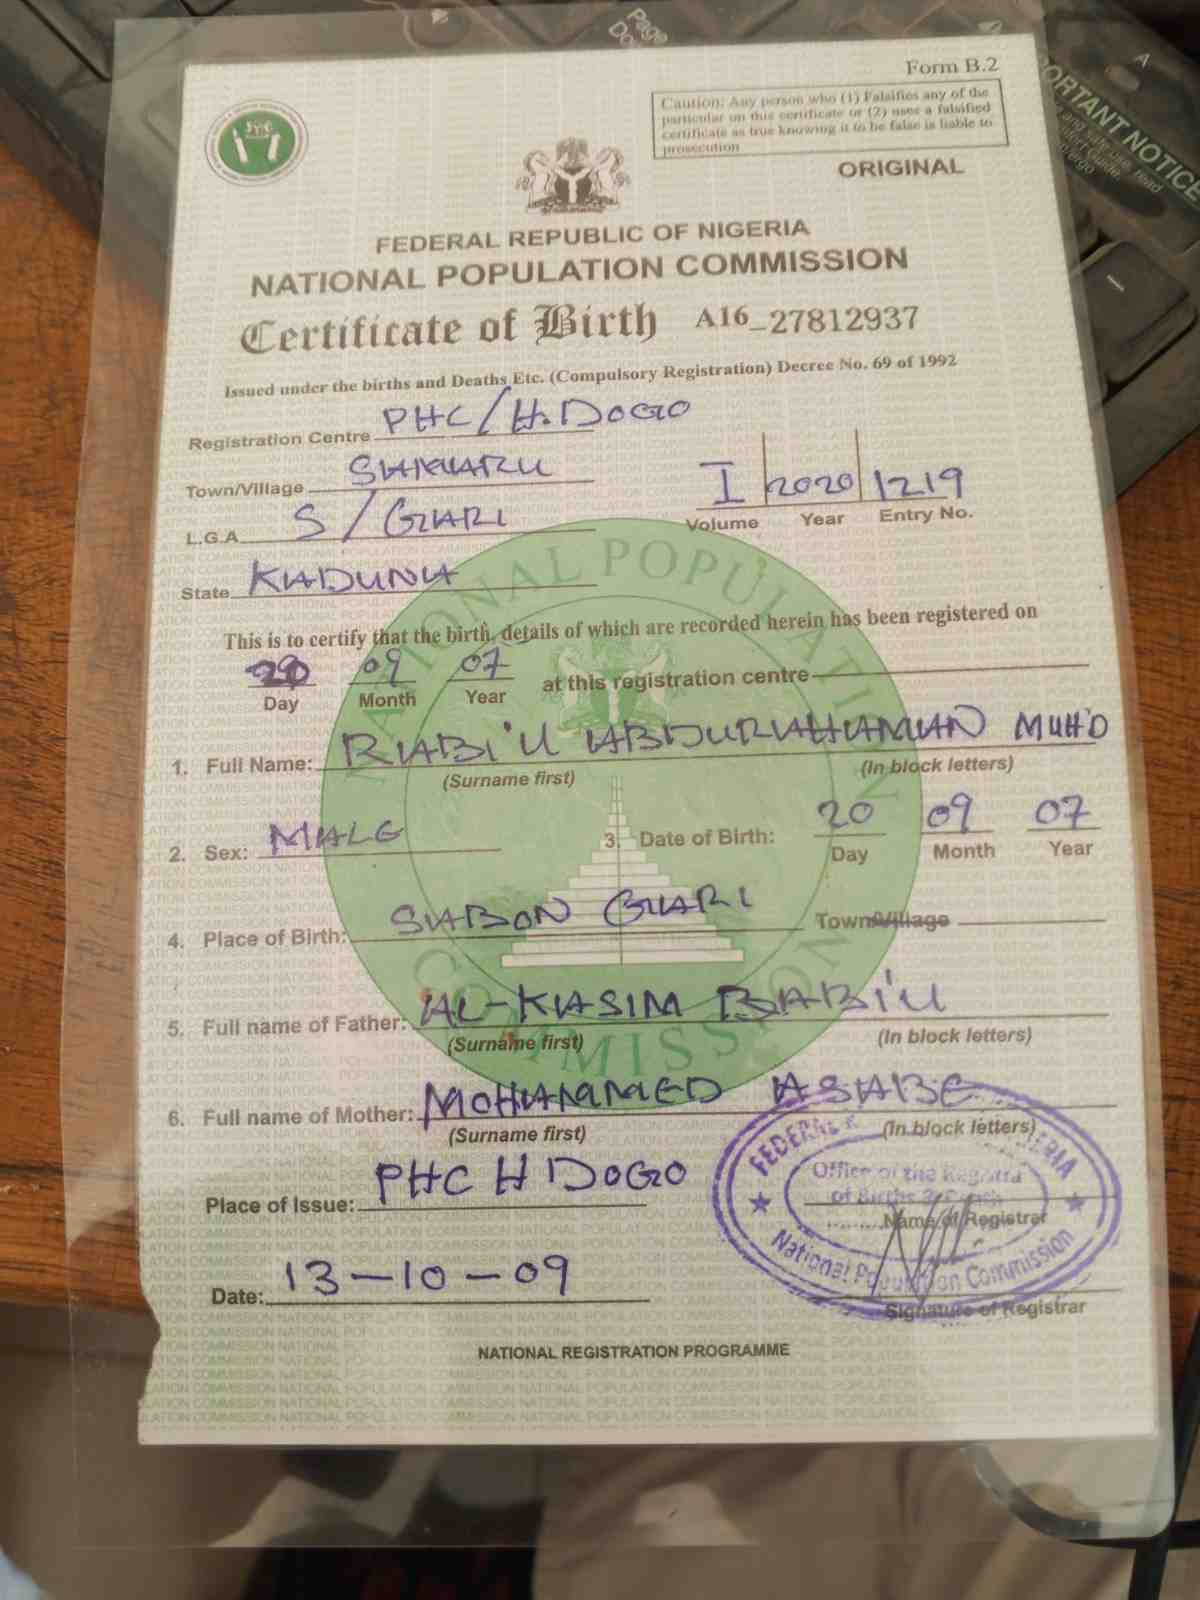 Page
Do
A
ORTANT NOTICE
Form B.2
Caution: Any person who (1) Falsifies any of the
particular on this certificate or (2) uses a falsified
certificate as true knowing it to be false is liable to
prosecution
ORIGINAL
FEDERAL REPUBLIC OF NIGERIA
NATIONAL POPULATION COMMISSION
Certificate of Birth A16_27812937
Issued under the births and Deaths Etc. (Compulsory Registration) Decree No. 69 of 1992
Registration Centre PHC/H.DOGO
Town/Village
I 2020 1219
Volume Year Entry No.
L.G.A. S/GARI
State KADUNA
This is to certify that the birth, details of which are recorded herein has been registered on
20 09 07
Day Month Year at this registration centre
1. Full Name: RABI'U ABDURAHAMAN MUH'D
(Surname first) (In block letters)
2. Sex: MALE 3. Date of Birth: 20 09 07
Day Month Year
4. Place of Birth: SABON GARI Town/Village
5. Full name of Father: AL-KASIM RABI'U
(Surname first) (In block letters)
6. Full name of Mother: MOHAMMED ASABE
(Surname first) (In block letters)
Place of Issue: PHC H DOGO
Name of Registrar
Date: 13-10-09
Signature of Registrar
Office of the
of Births
National Population Commission
NATIONAL REGISTRATION PROGRAMME
NATIONAL POPULATION
COMMISSION